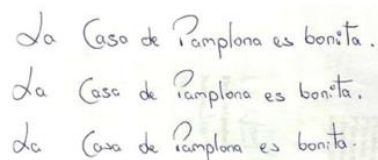 La Casa de Pamplona es bonita.
La Casa de Pamplona es bonita.
La Casa de Pamplona es bonita.